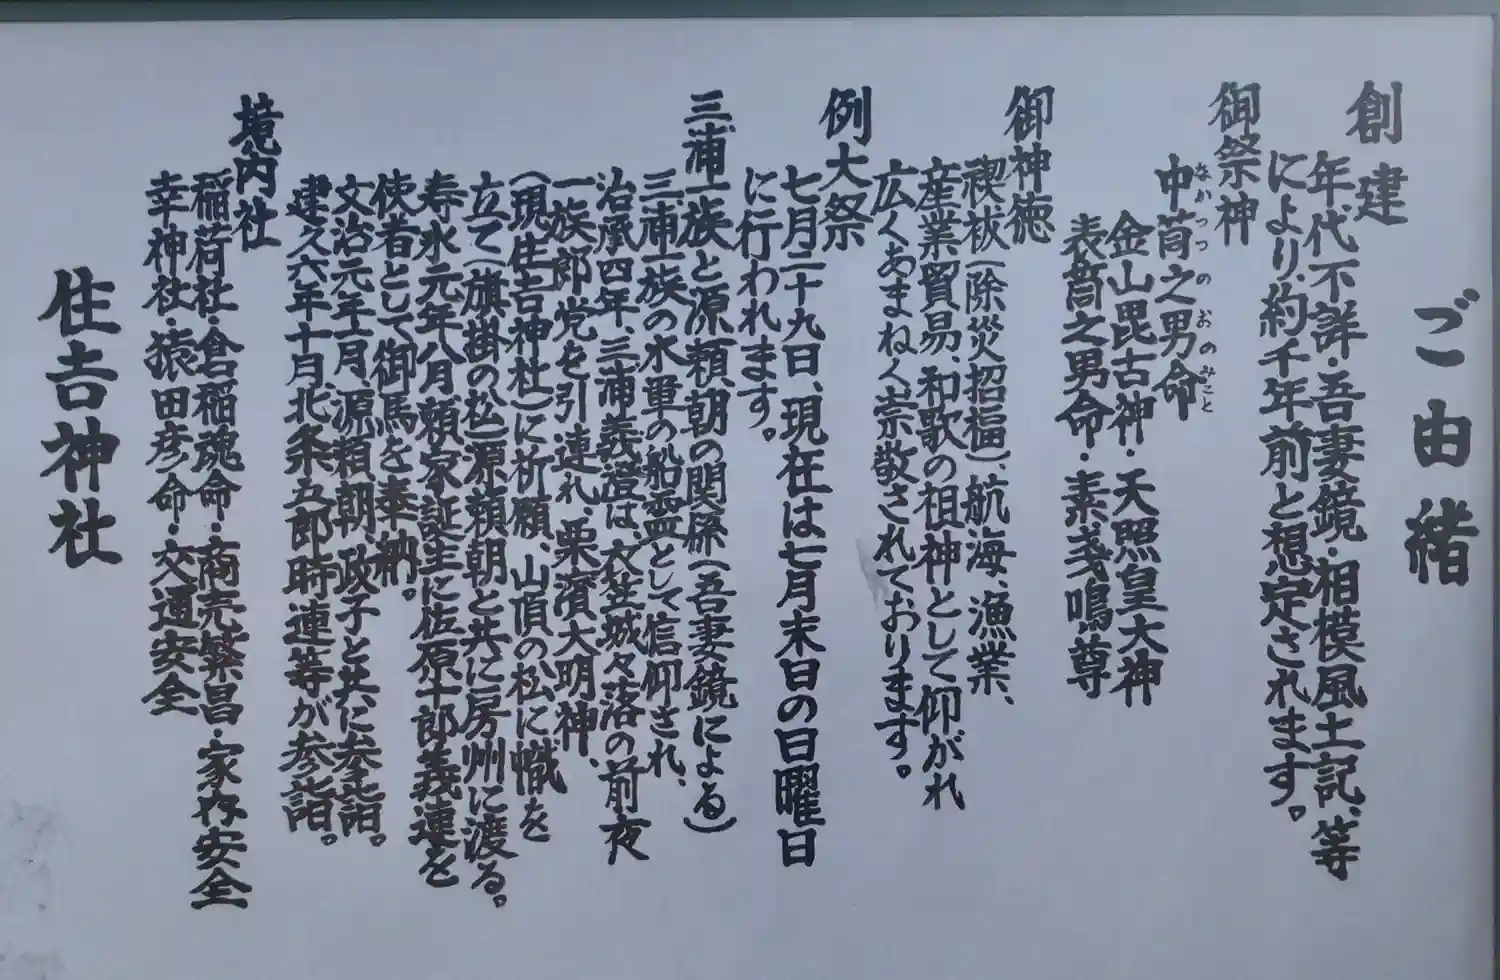 ご由緒
創建
年代不詳・吾妻鏡・相模風土記、等
により、約千年前と想定されます。
御祭神
なかつつのおのみこと
中筒之男命
金山毘古神・天照皇大神
表筒之男命・素戔鳴尊
御神徳
禊祓(除災招福)、航海、漁業、
産業貿易、和歌の祖神として仰がれ
広くあまねく崇敬されております。
例大祭
七月二十九日、現在は七月末日の日曜日
に行われます。
三浦一族と源頼朝の関係(吾妻鏡による)
三浦一族の水軍の船霊として信仰され、
治承四年、三浦義澄は、衣笠城々落の前夜
一族郎党を引連れ、栗濱大明神、
(現住吉神社)に祈願、山頂の松に幟を
立て(旗掛の松)源頼朝と共に房州に渡る。
寿永元年八月頼家誕生に佐原十郎義連を
使者として御馬を奉納。
文治元年七月、源頼朝、政子と共に参詣。
建久六年十月、北条五郎時連等が参詣。
境内社
稲荷社・倉稲魂命・商売繁昌・家内安全
幸神社・猿田彦命・交通安全
住吉神社